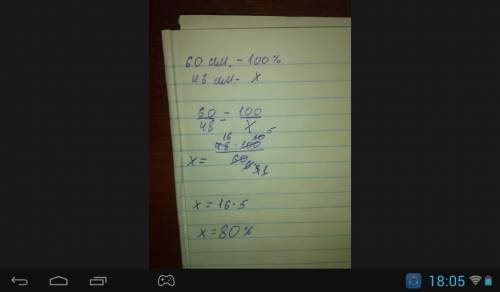 60 см. - 100%
48 см - x
60/48 = 100/x
x = 48 · 100 / 60
x = 16 · 5
x = 80%
18:05